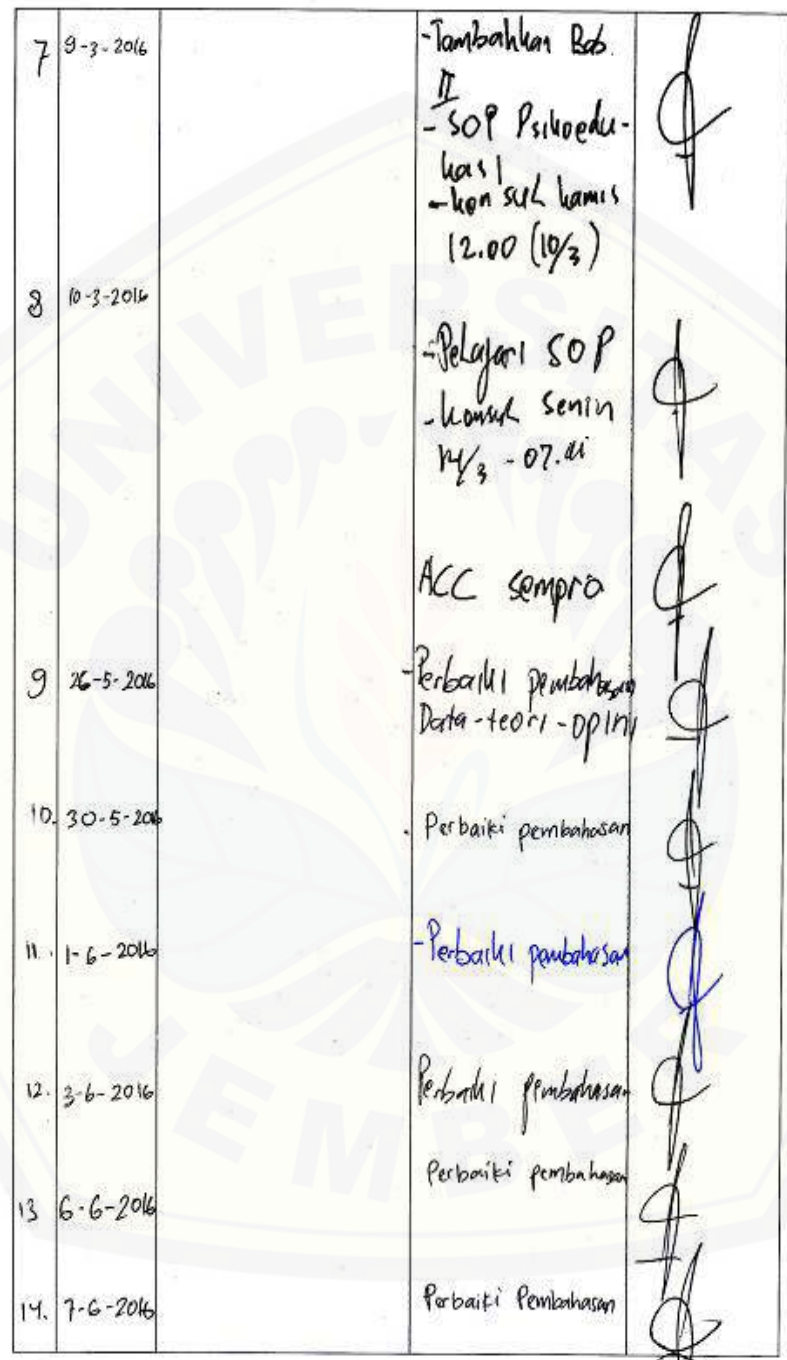 7 9-3-2016 -Tambahkan Bab.
II
- SOP Psikoedu-
kasi
- konsul kamis
12.00 (10/3)
8 10-3-2016
- Pelajari SOP
- konsul Senin
14/3 - 07.
ACC sempro
9 26-5-2016 -Perbaiki pembahasan
Data-teori-opini
10. 30-5-2016 Perbaiki pembahasan
11. 1-6-2016 -Perbaiki pembahasan
12. 3-6-2016 Perbaiki pembahasan
Perbaiki pembahasan
13 6-6-2016
14. 7-6-2016 Perbaiki Pembahasan
UNIVERSITAS
JEMBER